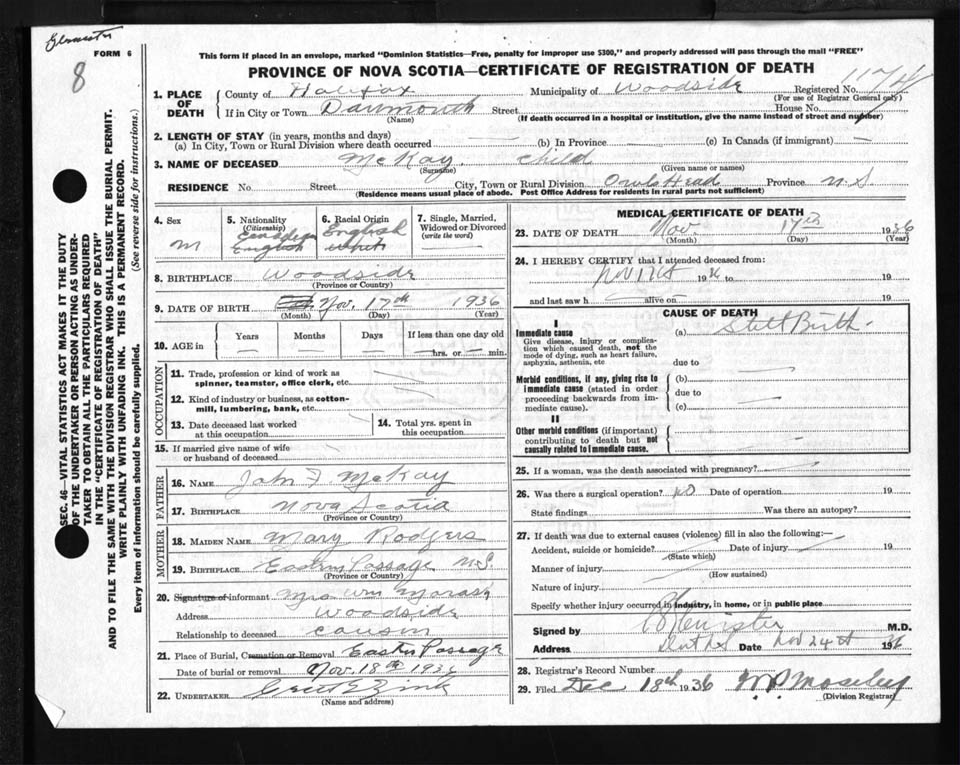 FORM 6
8
This form if placed in an envelope, marked "Dominion Statistics—Free, penalty for improper use $300," and properly addressed will pass through the mail "FREE"
PROVINCE OF NOVA SCOTIA—CERTIFICATE OF REGISTRATION OF DEATH
1. PLACE OF DEATH
County of Halifax Municipality of Woodside Registered No.
(For use of Registrar General only)
If in City or Town Dartmouth Street House No.
(Name) (If death occurred in a hospital or institution, give the name instead of street and number)
2. LENGTH OF STAY (in years, months and days)
(a) In City, Town or Rural Division where death occurred (b) In Province (c) In Canada (if immigrant)
3. NAME OF DECEASED McKay, child
(Surname) (Given name or names)
RESIDENCE No. Street City, Town or Rural Division Owls Head Province N.S
(Residence means usual place of abode. Post Office Address for residents in rural parts not sufficient)
SEC. 46—VITAL STATISTICS ACT MAKES IT THE DUTY
OF THE UNDERTAKER OR PERSON ACTING AS UNDER-
TAKER TO OBTAIN ALL THE PARTICULARS REQUIRED
IN THE "CERTIFICATE OF REGISTRATION OF DEATH"
AND TO FILE THE SAME WITH THE DIVISION REGISTRAR WHO SHALL ISSUE THE BURIAL PERMIT.
WRITE PLAINLY WITH UNFADING INK. THIS IS A PERMANENT RECORD.
Every item of information should be carefully supplied. (See reverse side for instructions.)
4. Sex
M
5. Nationality
(Citizenship)
Canadian
English
6. Racial Origin
English
7. Single, Married,
Widowed or Divorced
(write the word)
8. BIRTHPLACE Woodside
(Province or Country)
9. DATE OF BIRTH Nov. 17th 1936
(Month) (Day) (Year)
10. AGE in
Years Months Days If less than one day old
hrs. or min.
OCCUPATION
11. Trade, profession or kind of work as
spinner, teamster, office clerk, etc.
12. Kind of industry or business, as cotton-
mill, lumbering, bank, etc.
13. Date deceased last worked
at this occupation
14. Total yrs. spent in
this occupation
15. If married give name of wife
or husband of deceased
FATHER
16. NAME John F McKay
17. BIRTHPLACE Nova Scotia
(Province or Country)
MOTHER
18. MAIDEN NAME Mary Rodgers
19. BIRTHPLACE Eastern Passage N.S.
(Province or Country)
20. Signature of informant Mrs Wm Morash
Address Woodside
Relationship to deceased cousin
21. Place of Burial, Cremation or Removal Eastern Passage
Date of burial or removal Nov. 18th 1936
22. UNDERTAKER Zink
(Name and address)
MEDICAL CERTIFICATE OF DEATH
23. DATE OF DEATH Nov 17th 1936
(Month) (Day) (Year)
24. I HEREBY CERTIFY that I attended deceased from:
Nov 17th 1936 to 19
and last saw h alive on 19
CAUSE OF DEATH
I
Immediate cause (a) Still Birth
Give disease, injury or complica-
tion which caused death, not the
mode of dying, such as heart failure,
asphyxia, asthenia, etc due to
Morbid conditions, if any, giving rise to
immediate cause (stated in order
proceeding backwards from im-
mediate cause).
(b)
due to
(c)
II
Other morbid conditions (if important)
contributing to death but not
causally related to immediate cause.
25. If a woman, was the death associated with pregnancy?
26. Was there a surgical operation? no Date of operation 19
State findings Was there an autopsy?
27. If death was due to external causes (violence) fill in also the following:—
Accident, suicide or homicide? Date of injury 19
(State which)
Manner of injury
(How sustained)
Nature of injury
Specify whether injury occurred in industry, in home, or in public place
Signed by M.D.
Address Date Nov 24th 1936
28. Registrar's Record Number
29. Filed Dec 18th 1936
(Division Registrar)